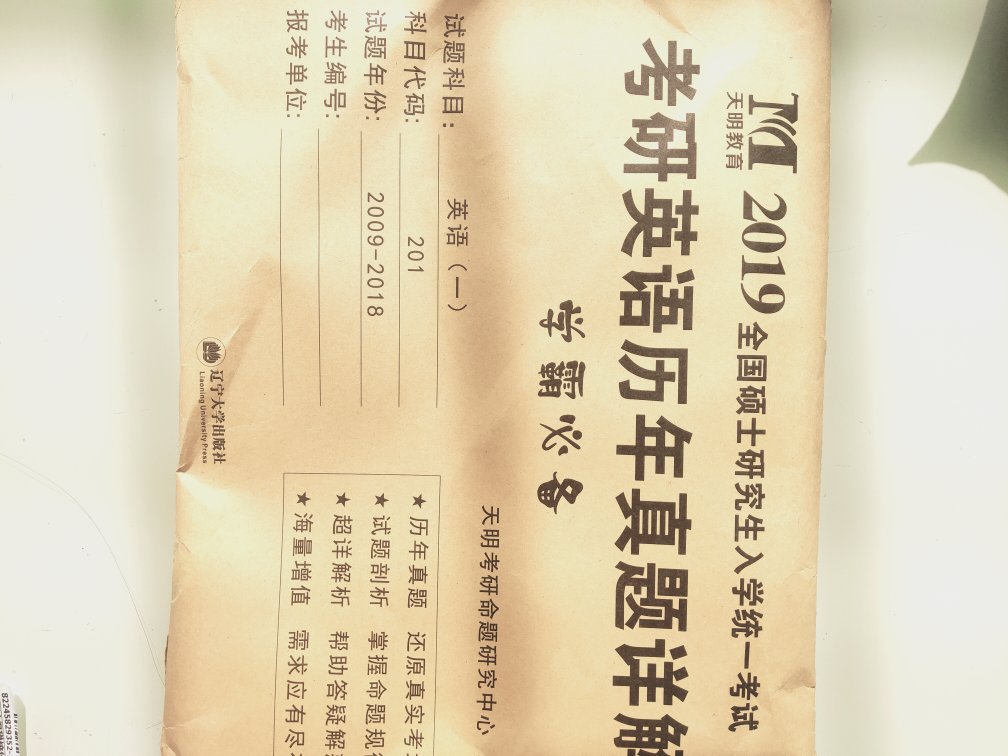 天明教育
2019全国硕士研究生入学统一考试
考研英语历年真题详解
学霸必备
天明考研命题研究中心
试题科目: 英语（一）
科目代码: 201
试题年份: 2009-2018
考生编号:
报考单位:
★ 历年真题 还原真实考
★ 试题剖析 掌握命题规
★ 超详解析 帮助答疑解
★ 海量增值 需求应有尽
辽宁大学出版社
Liaoning University Press
82245829352-